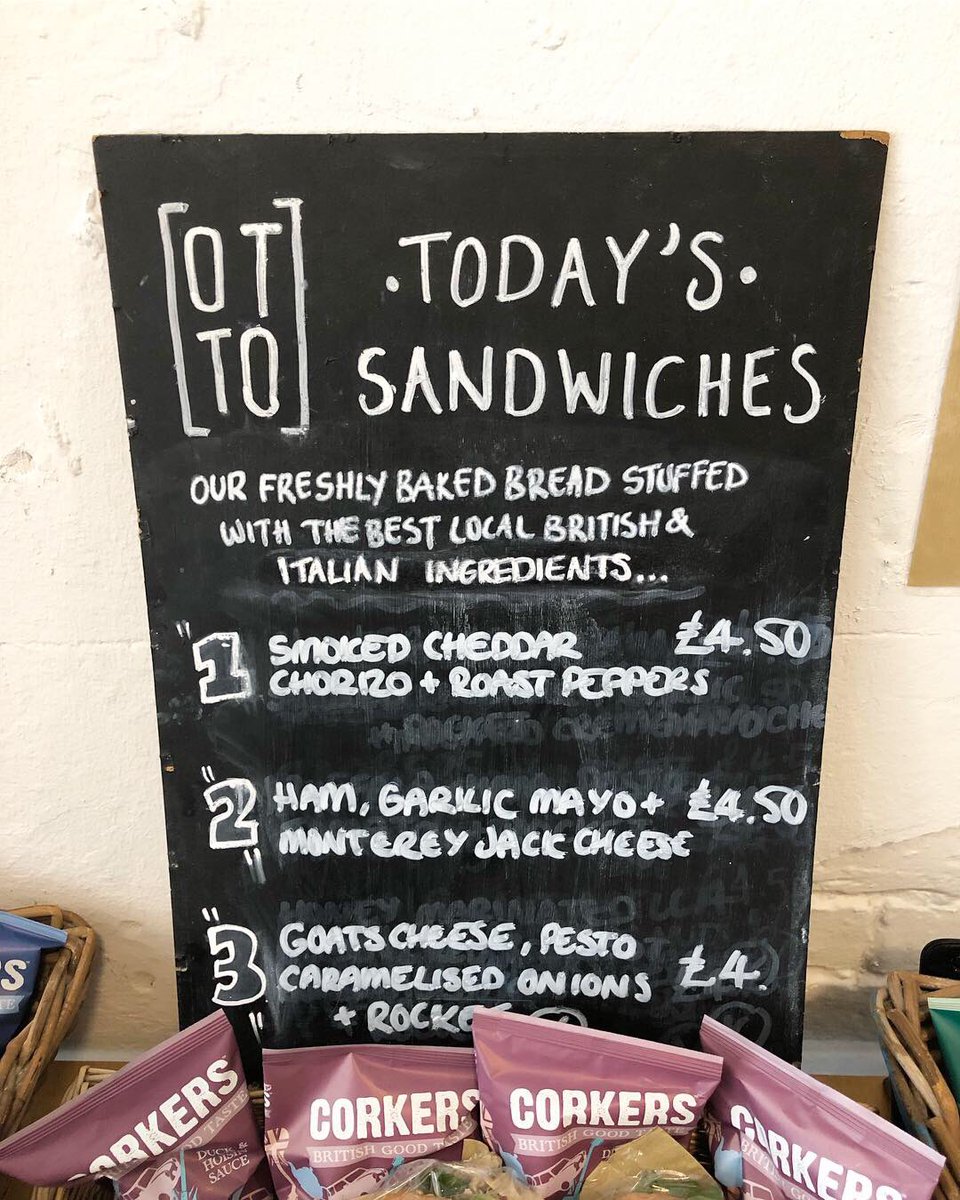 OT
TO
·TODAY'S·
SANDWICHES
OUR FRESHLY BAKED BREAD STUFFED
WITH THE BEST LOCAL BRITISH &
ITALIAN INGREDIENTS...
"1 SMOKED CHEDDAR £4.50
CHORIZO + ROAST PEPPERS
"2" HAM, GARILIC MAYO + £4.50
MONTEREY JACK CHEESE
"3" GOATS CHEESE, PESTO
CARAMELISED ONIONS £4.
+ ROCKET
KERS
CORKERS
DUCK &
HOISIN
SAUCE
CORKERS
BRITISH GOOD TASTE
CORKERS
BRITISH GOOD TASTE
CORKERS